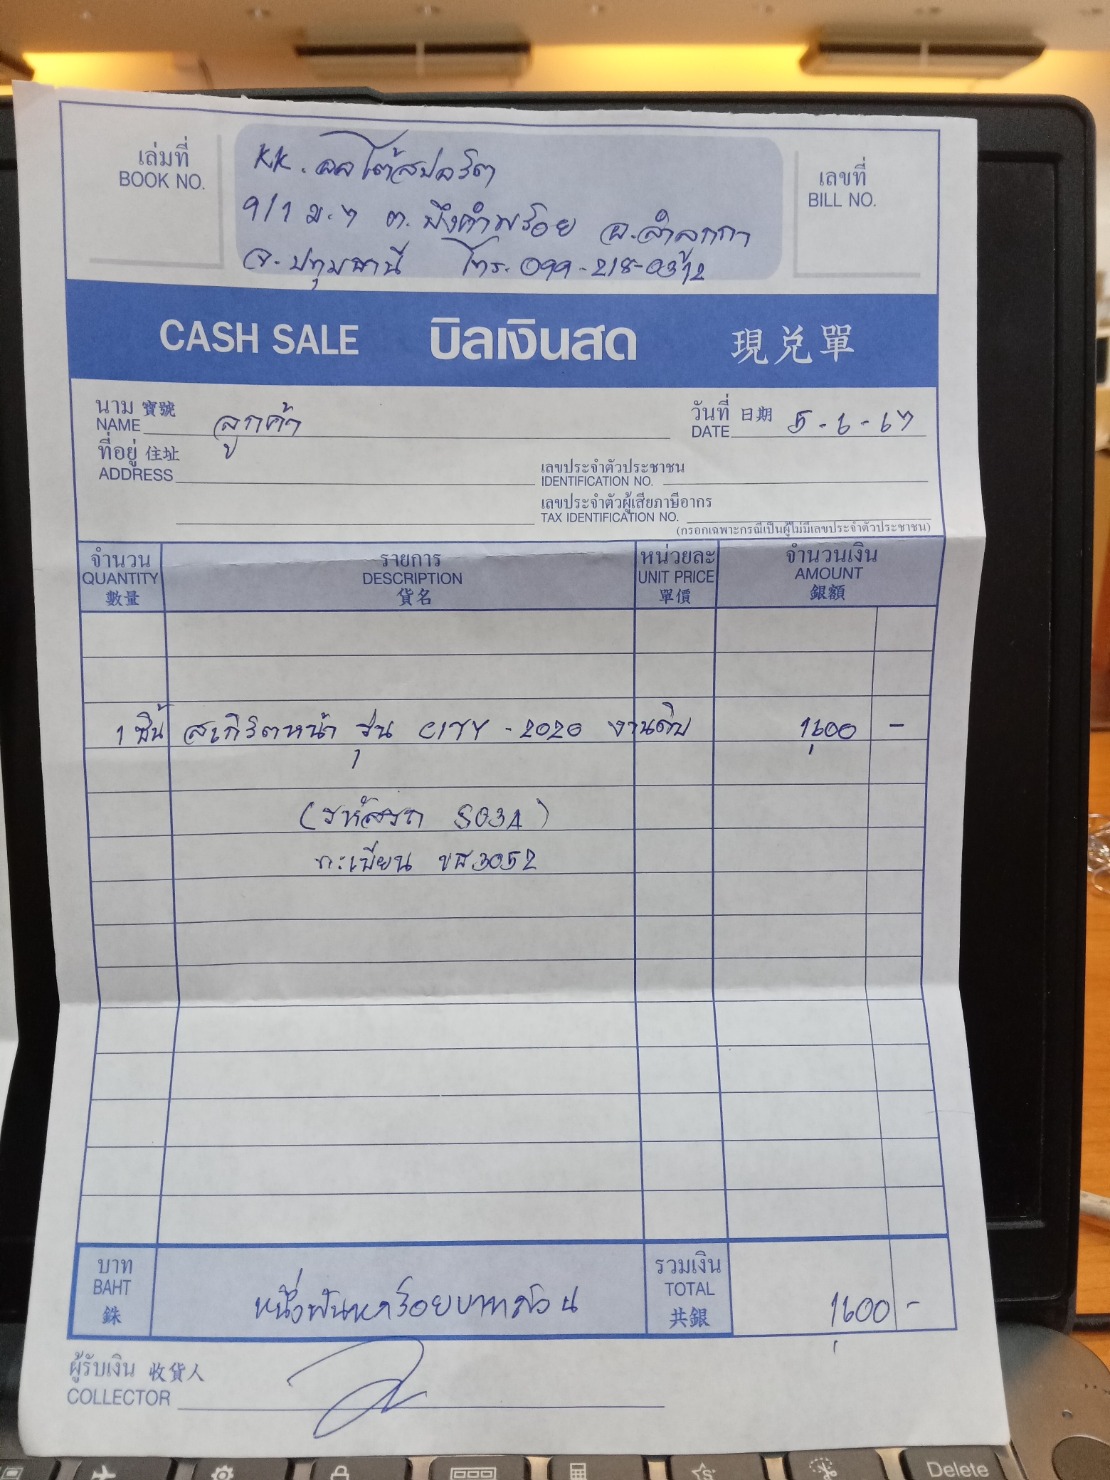 เล่มที่
BOOK NO.
K.K. ออโต้สปอร์ต
9/1 ม.7 ต. บึงคำพร้อย อ.ลำลูกกา
จ. ปทุมธานี โทร. 099-218-0312
เลขที่
BILL NO.
CASH SALE บิลเงินสด 現兌單
นาม 寶號
NAME ลูกค้า
วันที่ 日期
DATE 5-6-67
ที่อยู่ 住址
ADDRESS
เลขประจำตัวประชาชน
IDENTIFICATION NO.
เลขประจำตัวผู้เสียภาษีอากร
TAX IDENTIFICATION NO.
(กรอกเฉพาะกรณีเป็นผู้ไม่มีเลขประจำตัวประชาชน)
จำนวน รายการ หน่วยละ จำนวนเงิน
QUANTITY DESCRIPTION UNIT PRICE AMOUNT
數量 貨名 單價 銀額
1 ชิ้น สเกิร์ตหน้า รุ่น CITY - 2020 งานดิบ 1,600 -
(รหัสรถ S03A)
ทะเบียน 3052
บาท
BAHT
銖
หนึ่งพันหกร้อยบาทถ้วน
รวมเงิน
TOTAL
共銀
1,600 -
ผู้รับเงิน 收貨人
COLLECTOR
Delete